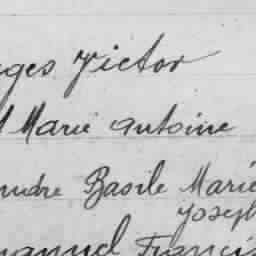 ges Victor
Marie Antoine
ndre Basile Marie
Joseph
manuel Francis